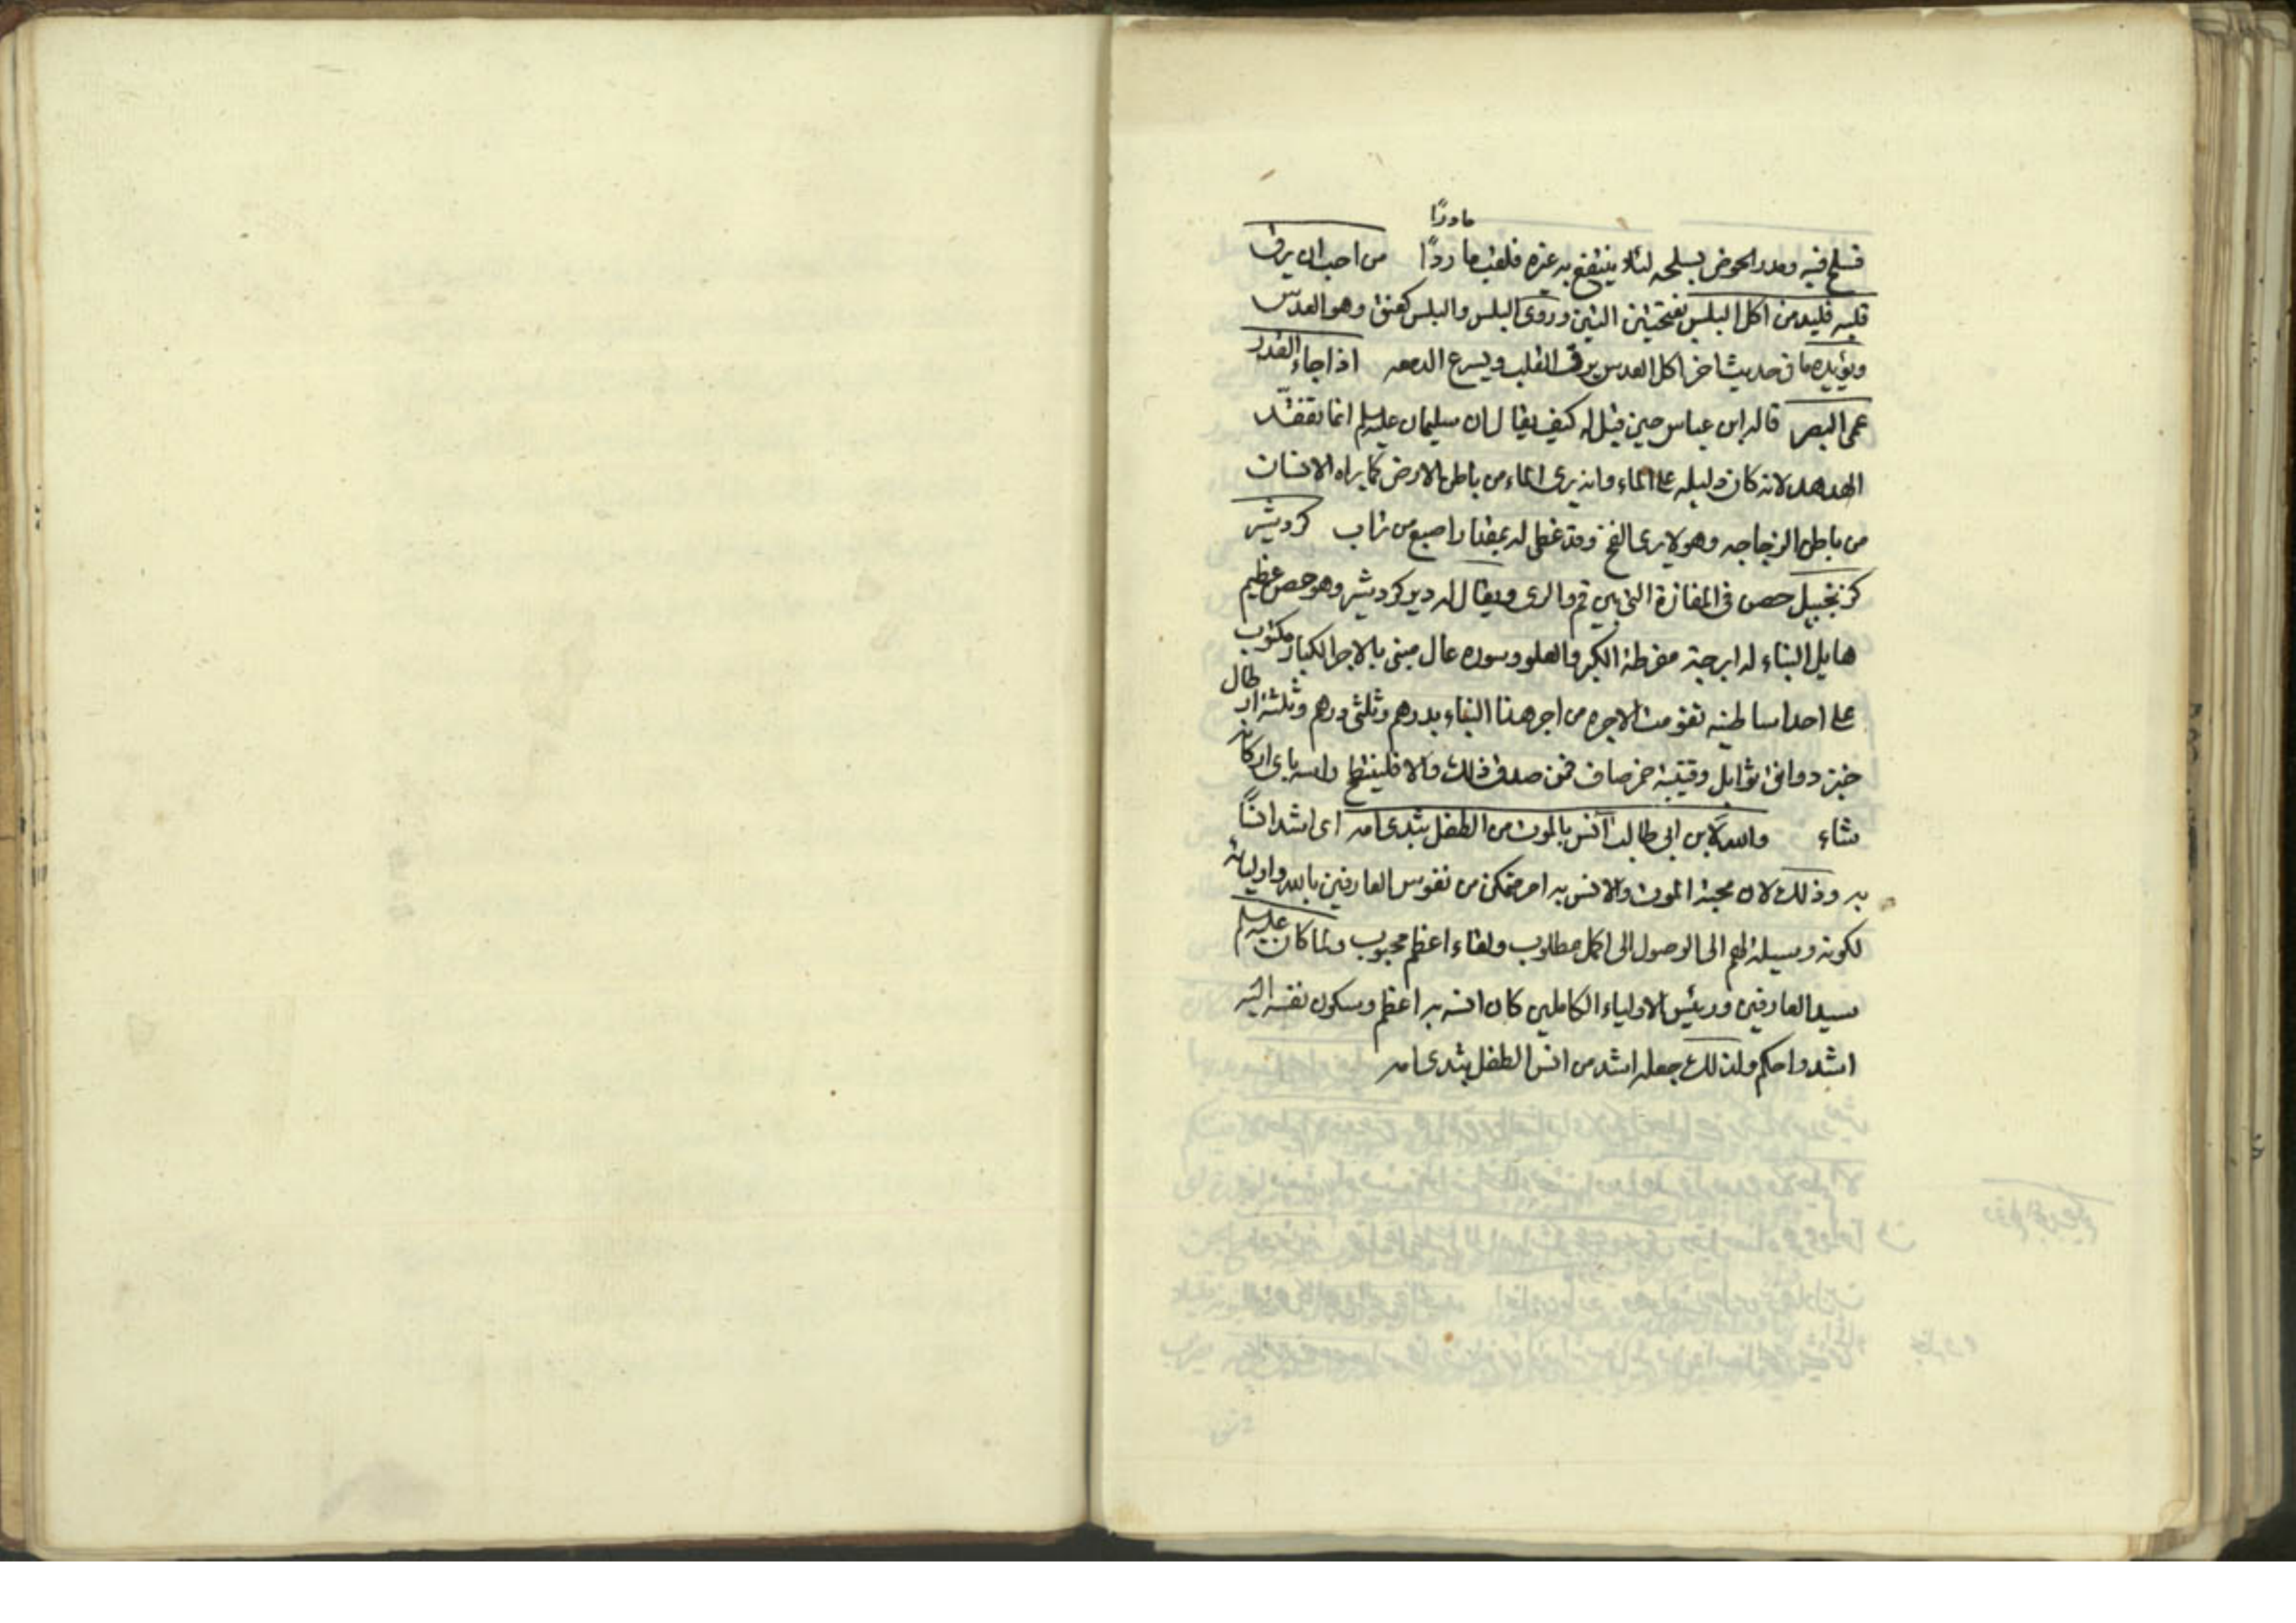 مادرًا
فسلح فيه ومدر الحوض بسلحه لئلا ينتفع به غيره فلقب مادرًا من احب ان يرق
قلبه فليدمن اكل البلس بفتحتين التين وروى البلس والبلس كعنق وهو العدس
ويؤيده ما فى حديث اخر اكل العدس يرق القلب ويسرع الدمعه اذا جاء القدر
عمى البصر قاله ابن عباس حين قيل له كيف يقال ان سليمان عليه السلم انما تفقد
الهدهد لانه كان دليله على الماء وانه يرى الماء من باطن الارض كما يراه الانسان
من باطن الزجاجه وهو لا يرى الفخ وقد غطى له بمقدار اصبع من تراب كردشير
كزنجبيل حصن فى المفازة التى بين قم والرى ويقال له دير كردشير وهو حصن عظيم
هايل البناء له ابرجة مفرطة الكبر والعلو وسوره عال مبنى بالاجر الكبار مكتوب
على احد اساطينه تقومت الاجره من اجر هذا البناء بدرهم وثلثى درهم وثلثة ارطال
خبز ودوانق توابل وقنينة خمر صاف فمن صدق ذلك والا فلينتطح راسه باى اركانه
شاء والله لابن ابى طالب آنس بالموت من الطفل بثدى امه اى اشد انسًا
به وذلك لان محبة الموت والانس به امر متمكن من نفوس العارفين بالله واوليائه
لكونه وسيلة لهم الى الوصول الى اكمل مطلوب ولقاء اعظم محبوب ولما كان عليه السلم
سيد العارفين ورئيس الاولياء الكاملين كان انسه به اعظم وسكون نفسه اليه
اشد واحكم ولذلك جعله اشد من انس الطفل بثدى امه